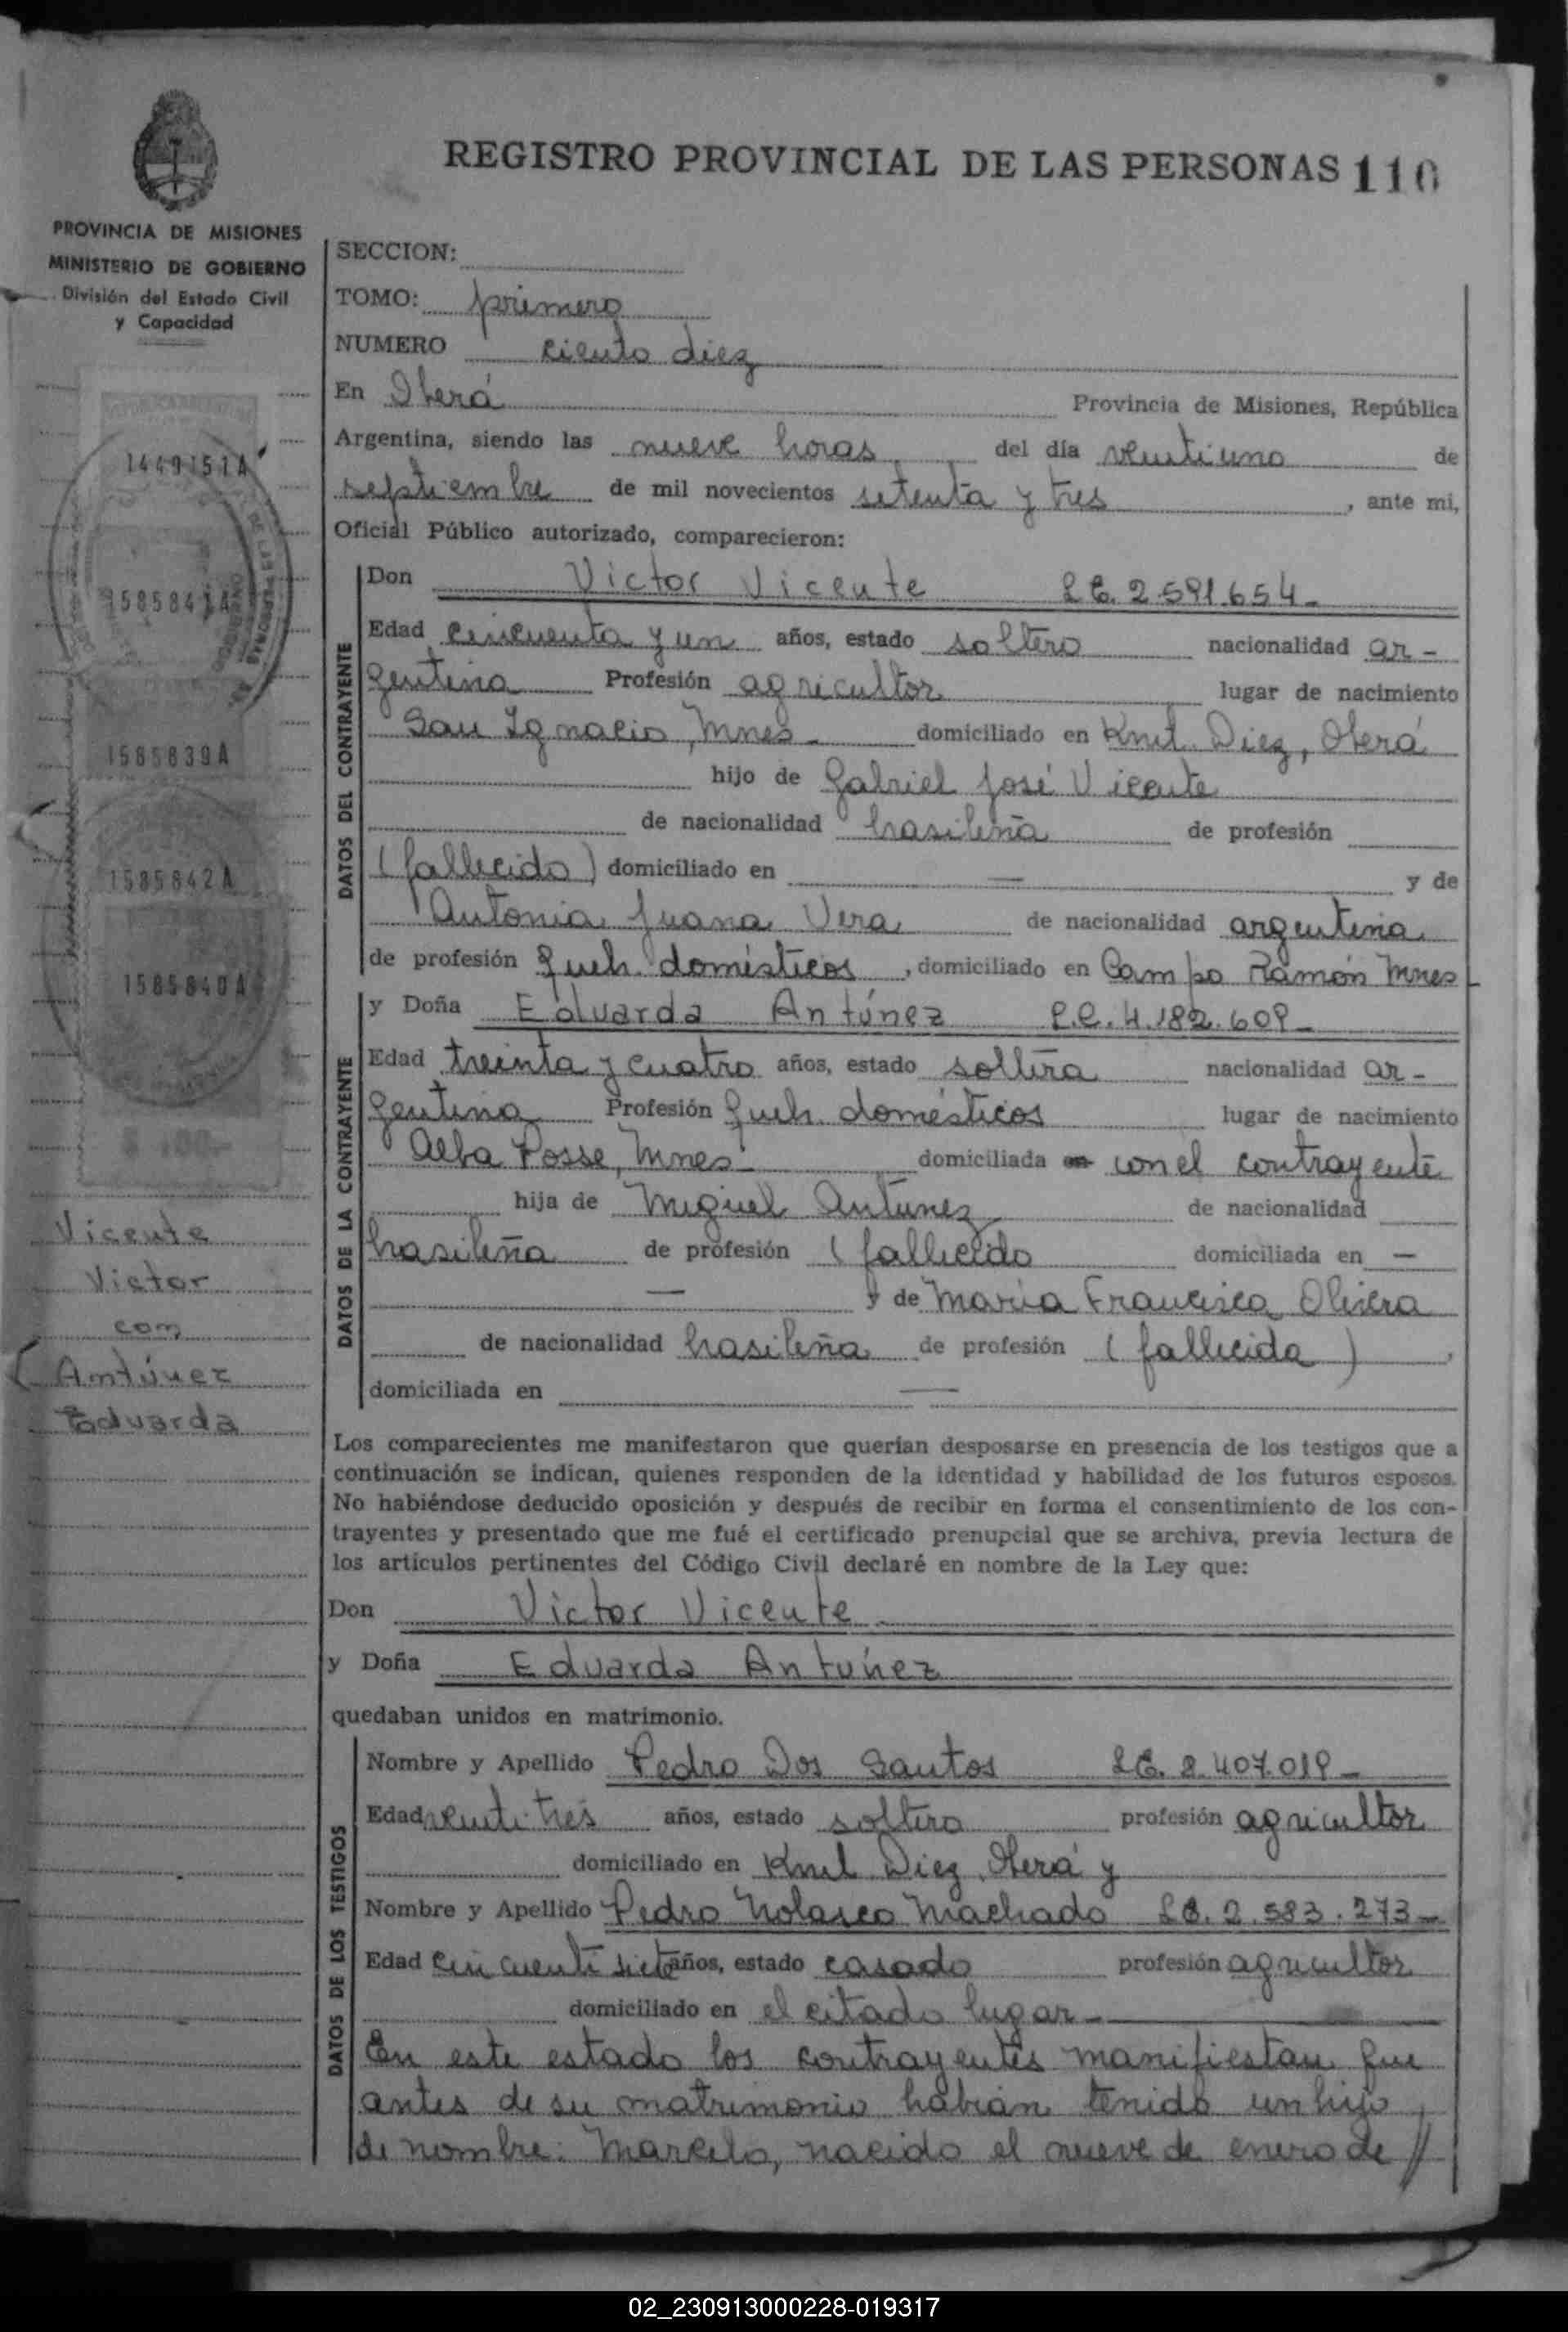 REGISTRO PROVINCIAL DE LAS PERSONAS 110
PROVINCIA DE MISIONES
MINISTERIO DE GOBIERNO
División del Estado Civil
y Capacidad
1449151A
1585841A
1585839A
1585842A
1585840A
Vicente
Victor
con
Antúnez
Eduarda
SECCION:
TOMO: primero
NUMERO ciento diez
En Oberá Provincia de Misiones, República
Argentina, siendo las nueve horas del día veintiuno de
septiembre de mil novecientos setenta y tres, ante mi,
Oficial Público autorizado, comparecieron:
DATOS DEL CONTRAYENTE
Don Victor Vicente L.E. 2.591.654-
Edad cincuenta y un años, estado soltero nacionalidad ar-
gentina Profesión agricultor lugar de nacimiento
San Ignacio, Mnes- domiciliado en Kmt. Diez, Oberá
hijo de Gabriel José Vicente
de nacionalidad brasileña de profesión
(fallecido) domiciliado en — y de
Antonia Juana Vera de nacionalidad argentina
de profesión queh. domésticos, domiciliado en Campo Ramón Mnes-
DATOS DE LA CONTRAYENTE
y Doña Eduarda Antúnez L.C. 4.182.609-
Edad treinta y cuatro años, estado soltera nacionalidad ar-
gentina Profesión queh. domésticos lugar de nacimiento
Alba Posse, Mnes- domiciliada en con el contrayente
hija de Miguel Antunez de nacionalidad
brasileña de profesión (fallecido domiciliada en —
— y de María Francisca Olivera
de nacionalidad brasileña de profesión (fallecida),
domiciliada en —
Los comparecientes me manifestaron que querían desposarse en presencia de los testigos que a
continuación se indican, quienes responden de la identidad y habilidad de los futuros esposos.
No habiéndose deducido oposición y después de recibir en forma el consentimiento de los con-
trayentes y presentado que me fué el certificado prenupcial que se archiva, previa lectura de
los artículos pertinentes del Código Civil declaré en nombre de la Ley que:
Don Victor Vicente
y Doña Eduarda Antúnez
quedaban unidos en matrimonio.
DATOS DE LOS TESTIGOS
Nombre y Apellido Pedro Dos Santos L.E. 8.407.019-
Edad veinti-trés años, estado soltero profesión agricultor
domiciliado en Kmt. Diez, Oberá y
Nombre y Apellido Pedro Nolasco Machado L.E. 2.583.273-
Edad cincuenti siete años, estado casado profesión agricultor
domiciliado en el citado lugar-
En este estado los contrayentes manifiestan que
antes de su matrimonio habían tenido un hijo,
de nombre: Marcelo, nacido el nueve de enero de //
02_230913000228-019317